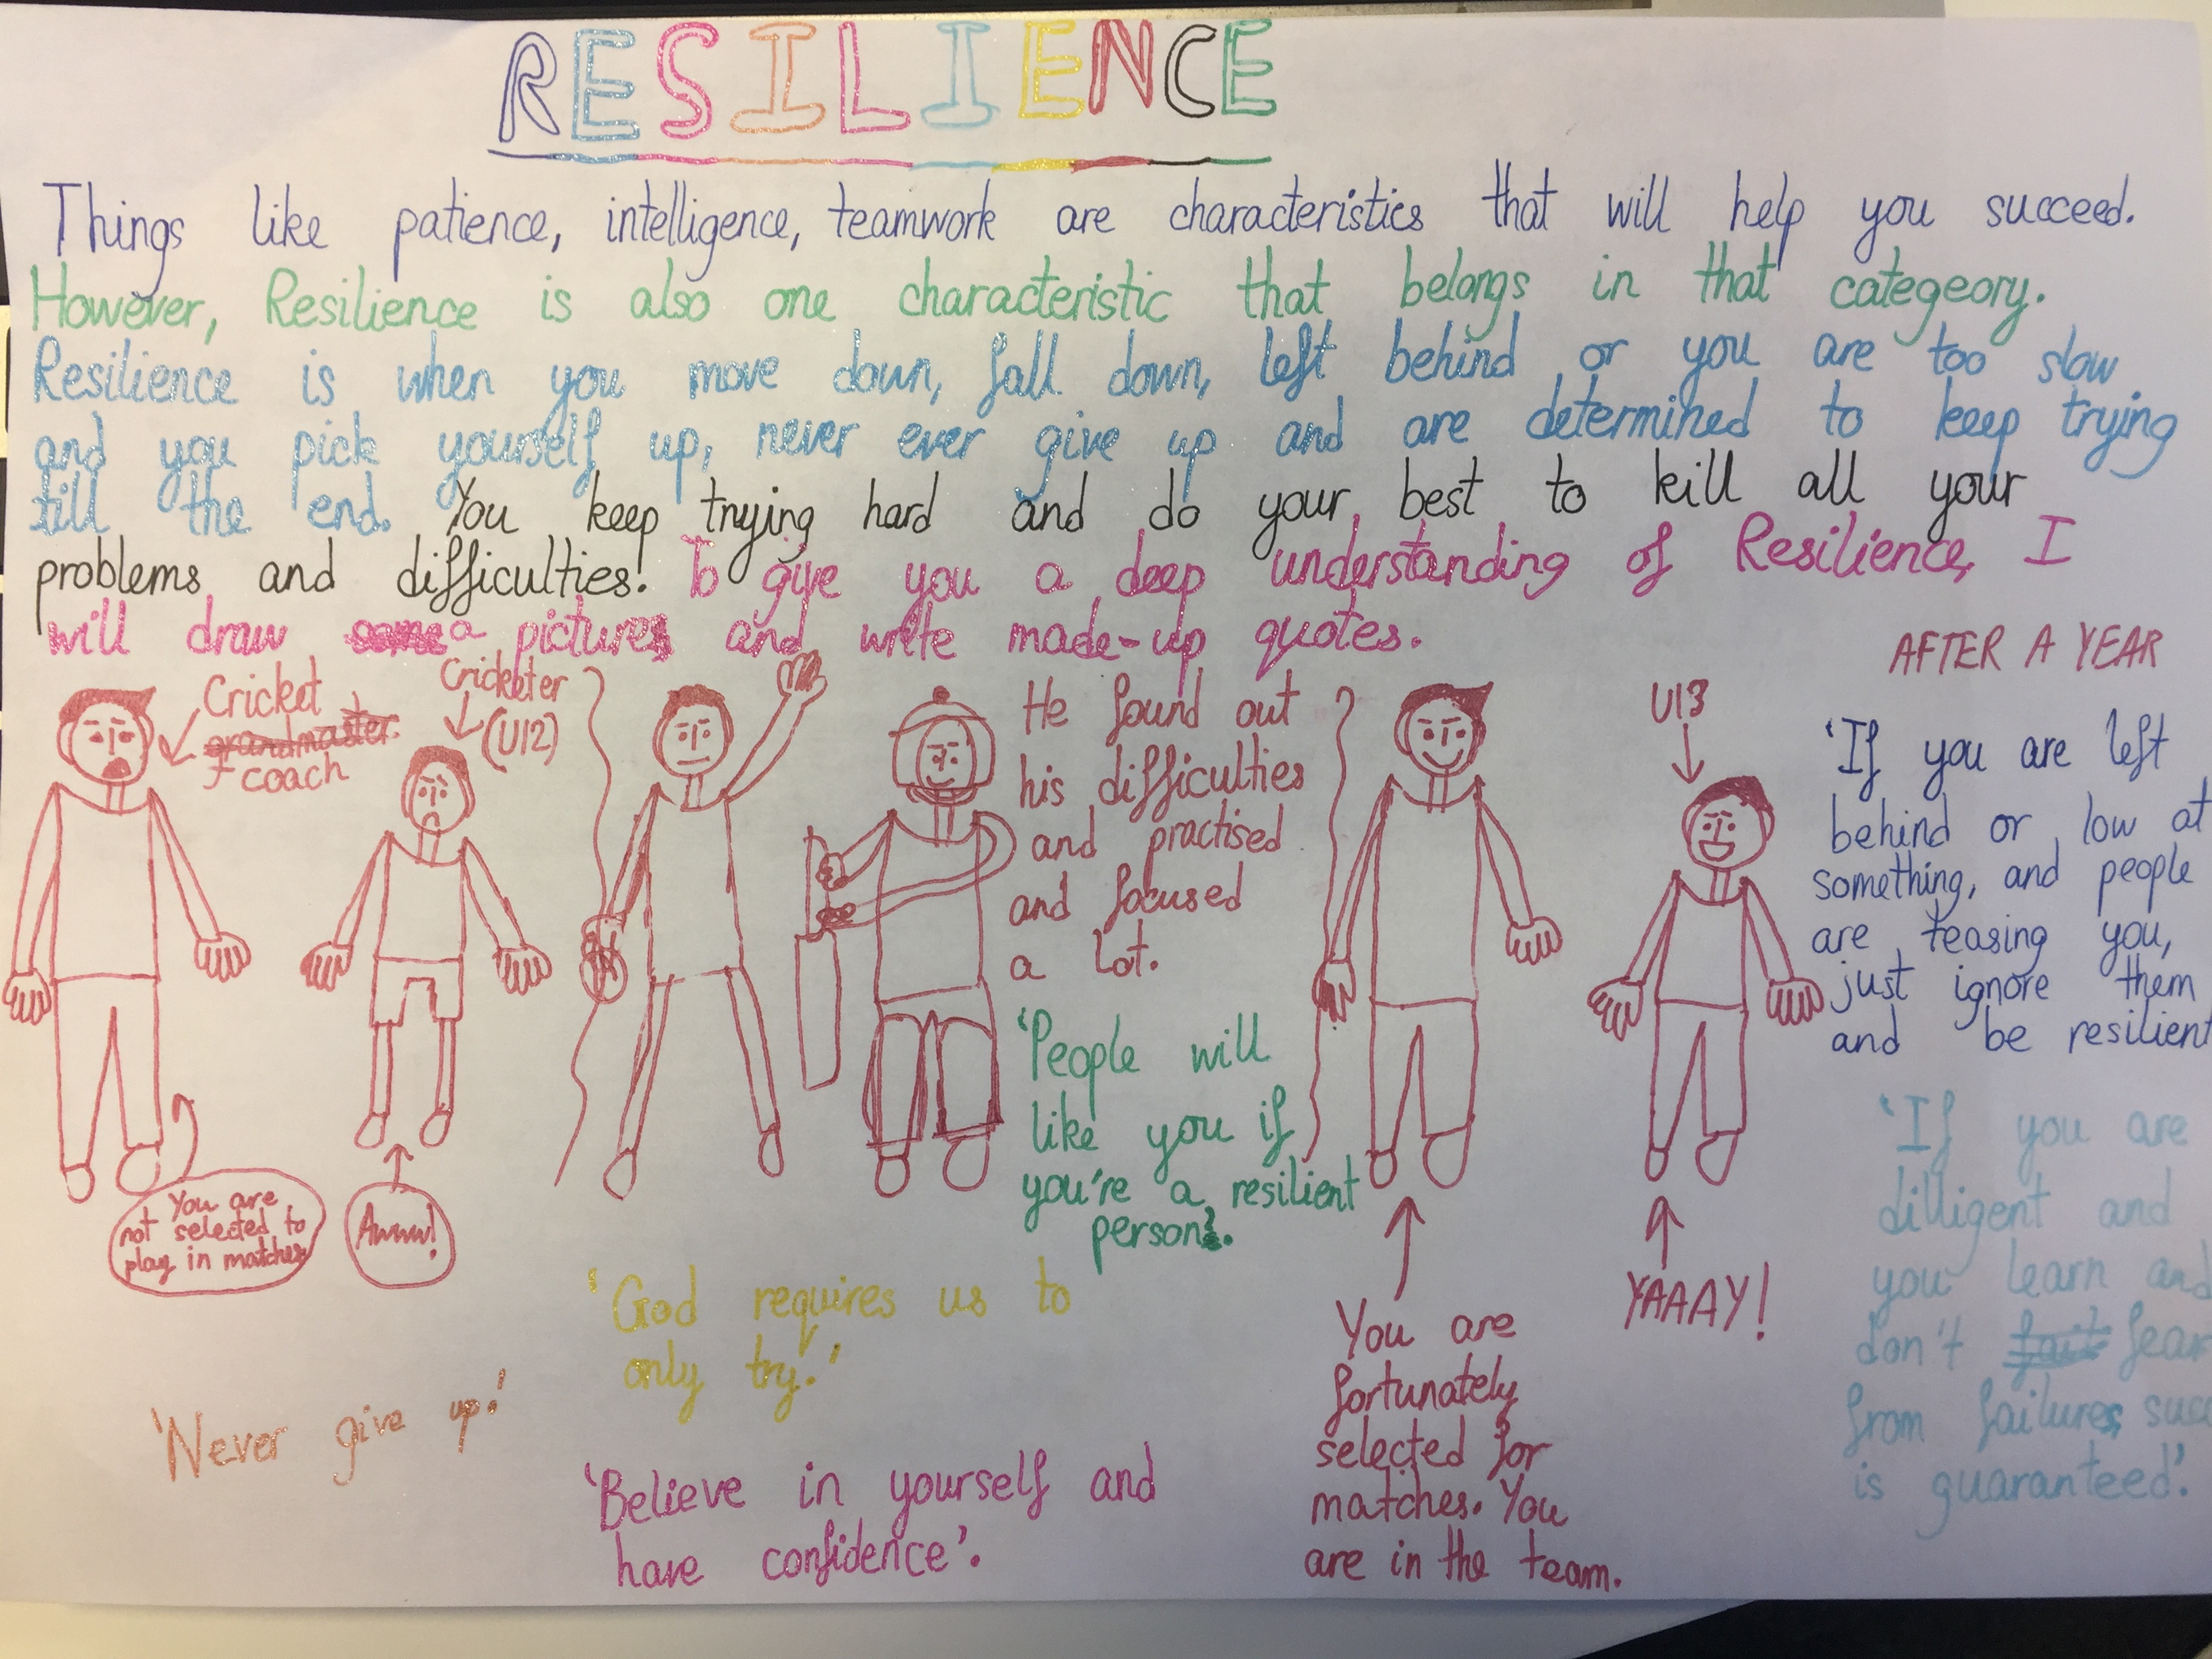 RESILIENCE
Things like patience, intelligence, teamwork are characteristics that will help you succeed.
However, Resilience is also one characteristic that belongs in that categeory.
Resilience is when you move down, fall down, left behind or you are too slow
and you pick yourself up, never ever give up and are determined to keep trying
till the end. You keep trying hard and do your best to kill all your
problems and difficulties! To give you a deep understanding of Resilience, I
will draw a picture and write made-up quotes.
Cricket
coach
Cricketer
(U12)
You are
not selected to
play in matches
Awww!
He found out
his difficulties
and practised
and focused
a lot.
'People will
like you if
you're a resilient
person.
AFTER A YEAR
U13
You are
fortunately
selected for
matches. You
are in the team.
YAAAY!
'If you are left
behind or low at
something, and people
are teasing you,
just ignore them
and be resilient
'If you are
dilligent and
you learn and
don't fear
from failures
is guaranteed'.
'God requires us to
only try.'
'Never give up!'
'Believe in yourself and
have confidence'.